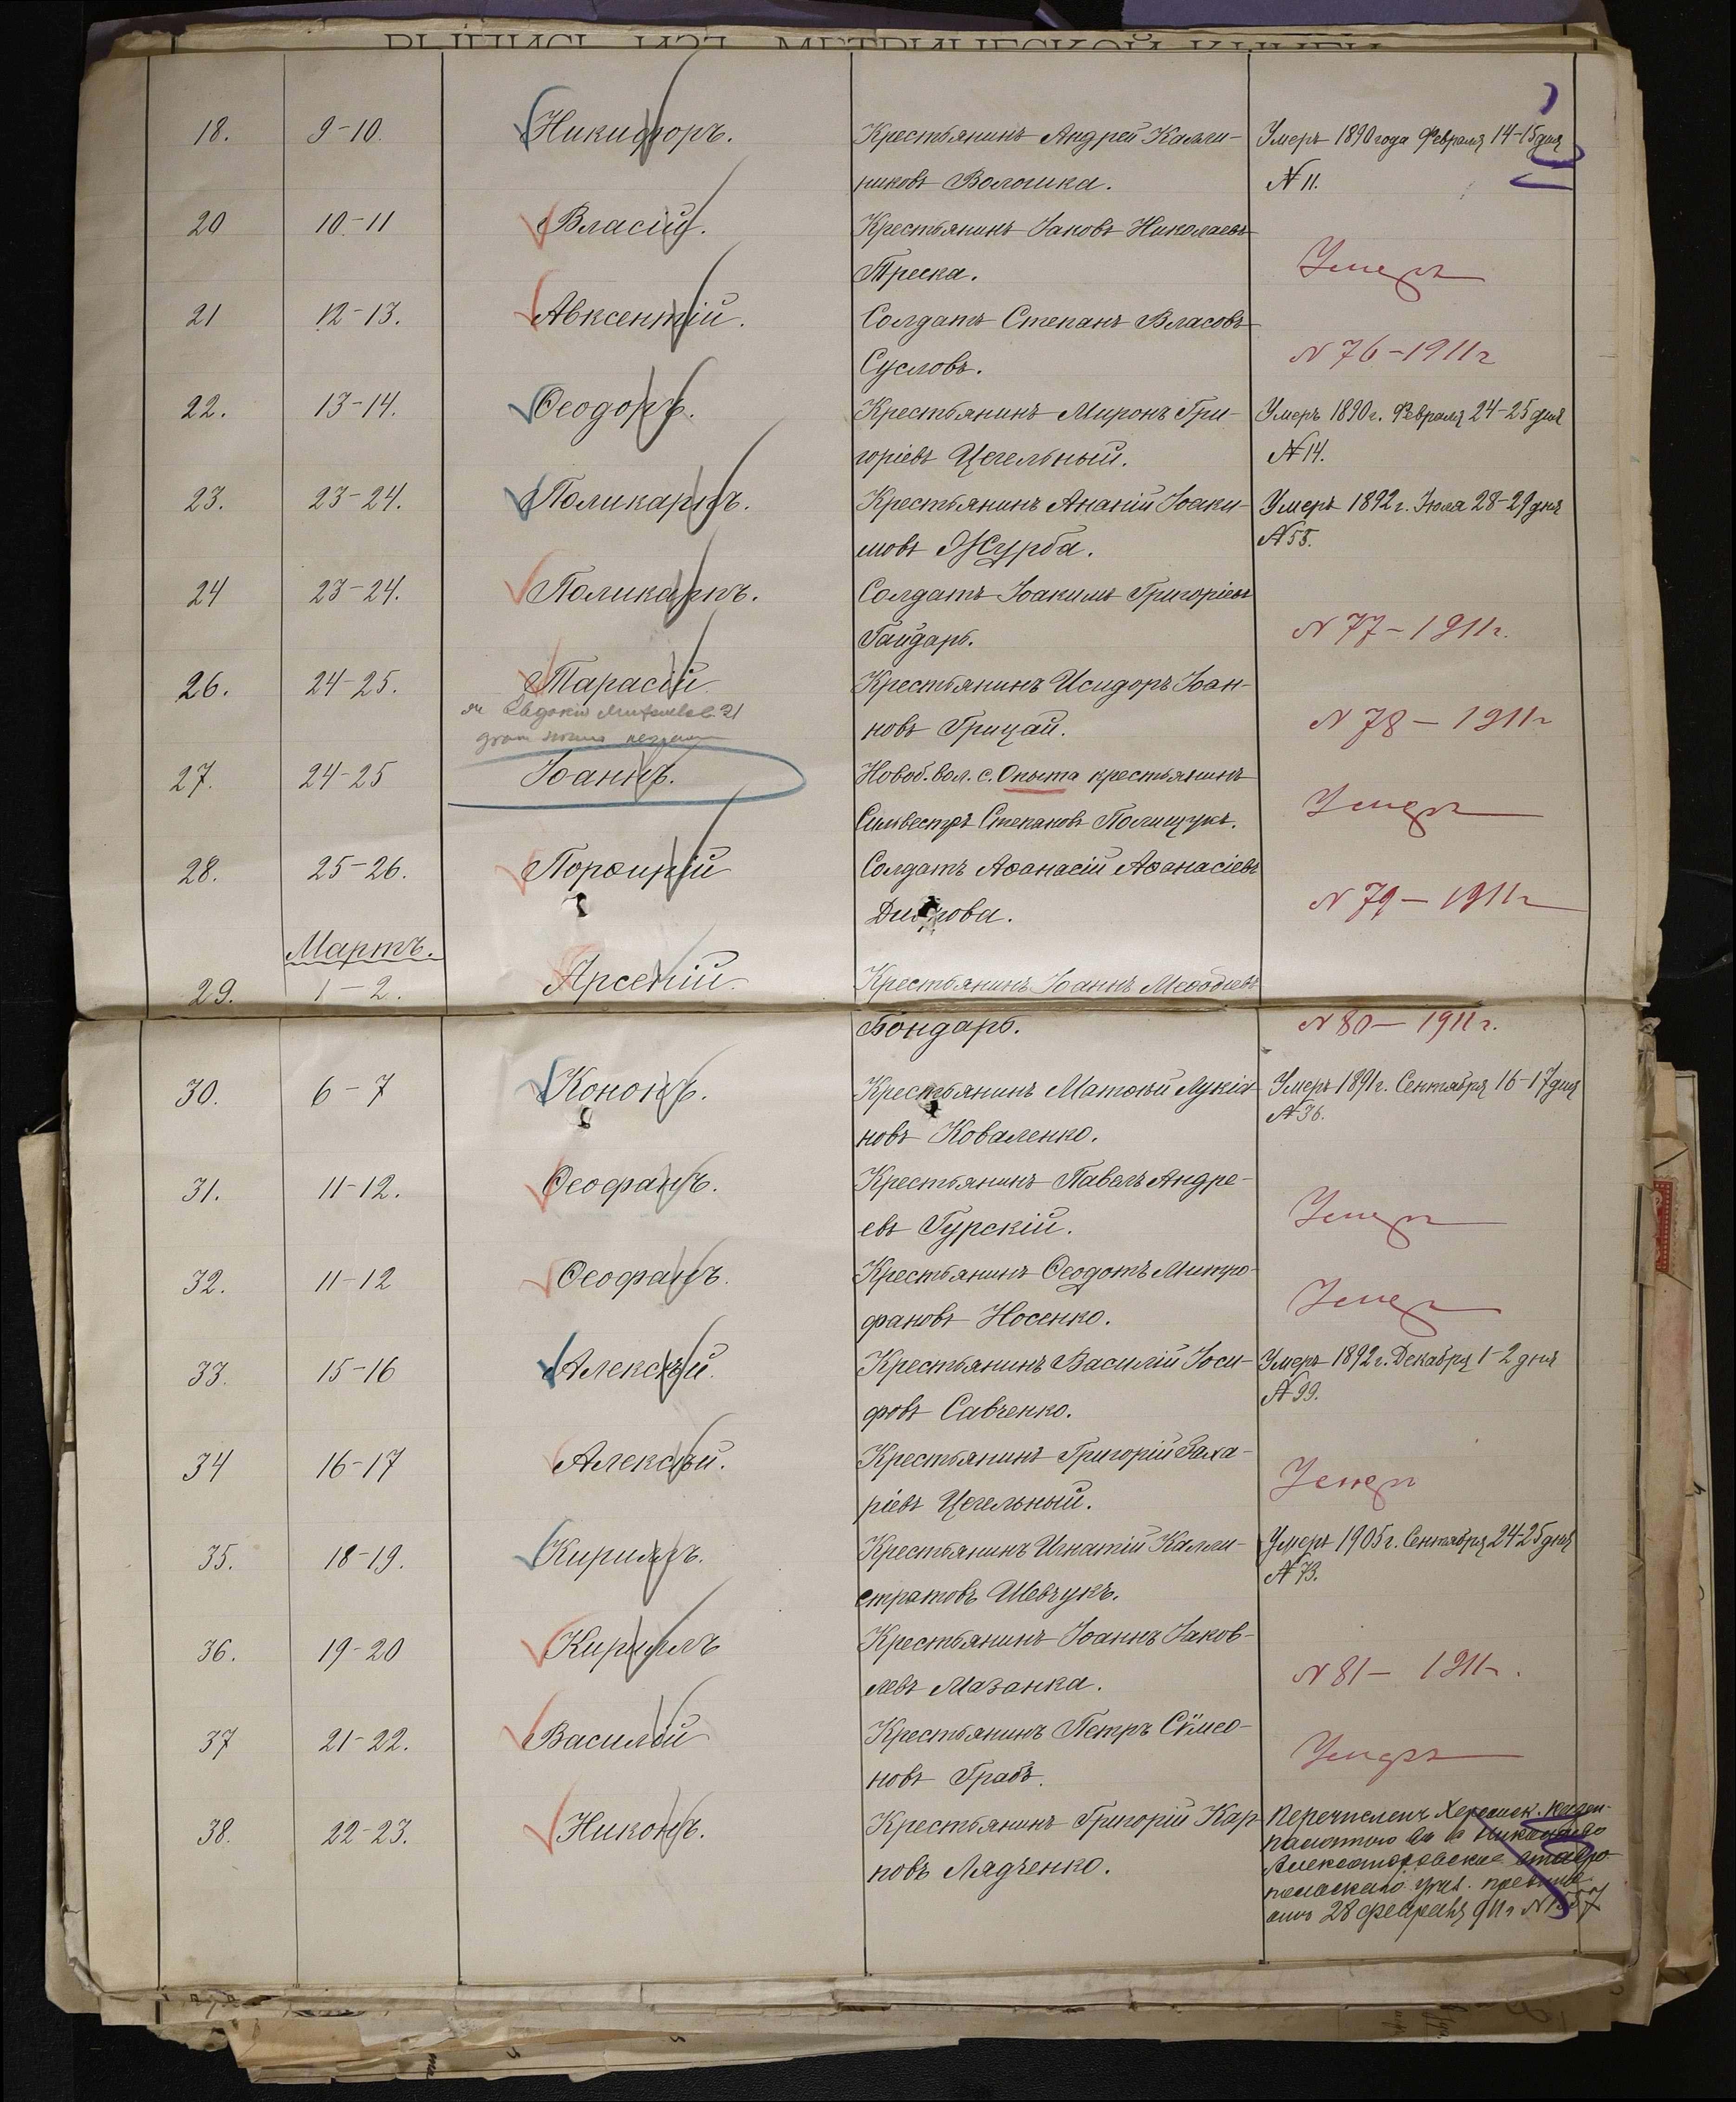 ВЫПИСЬ ИЗЪ МЕТРИЧЕСКОЙ КНИГИ
18. 9-10. Никифоръ. Крестьянинъ Андрей Калли- Умеръ 1890 года Февраля 14-15 дня
никовъ Волошка. № 11.
20 10-11 Власій. Крестьянинъ Іаковъ Николаевъ
Треска. Умеръ
21 12-13. Авксентій. Солдатъ Степанъ Власовъ
Сусловъ. N 76-1911 г
22. 13-14. Ѳеодоръ. Крестьянинъ Миронъ Гри- Умеръ 1890 г. Февраля 24-25 дня
горіевъ Цегельный. № 14.
23. 23-24. Поликарпъ. Крестьянинъ Ананій Іоаки- Умеръ 1892 г. Іюля 28-29 дня
мовъ Журба. № 55.
24 23-24. Поликарпъ. Солдатъ Іоакимъ Григоріевъ
Гайдарь. N 77-1911 г.
26. 24-25. Тарасій Крестьянинъ Исидоръ Іоан-
новъ Грицай. N 78-1911 г
27. 24-25 Іоаннъ. Новоб. вол. с. Опыта крестьянинъ
Сильвестръ Степановъ Полищукъ. Умеръ
28. 25-26. Порфирій Солдатъ Аѳанасій Аѳанасіевъ
N 79-1911 г
Мартъ.
29. 1-2. Арсеній. Крестьянинъ Іоаннъ Меѳодіевъ
Бондарь. N 80-1911 г.
30. 6-7 Кононъ. Крестьянинъ Матѳей Лукія- Умеръ 1891 г. Сентября 16-17 дня
новъ Коваленко. № 36.
31. 11-12. Ѳеофанъ. Крестьянинъ Павелъ Андре-
евъ Гурскій. Умеръ
32. 11-12 Ѳеофанъ. Крестьянинъ Ѳеодотъ Митро-
фановъ Носенко. Умеръ
33. 15-16 Алексѣй. Крестьянинъ Василій Іоси- Умеръ 1892 г. Декабря 1-2 дня
фовъ Савченко. № 99.
34 16-17 Алексѣй. Крестьянинъ Григорій Заха-
ріевъ Цегельный. Умеръ
35. 18-19. Кириллъ. Крестьянинъ Игнатій Калли- Умеръ 1905 г. Сентября 24-25 дня
стратовъ Шевчукъ. № 73.
36. 19-20 Кириллъ Крестьянинъ Іоаннъ Іаков-
левъ Мазанка. N 81-1911 г.
37 21-22. Василій Крестьянинъ Петръ Сѵмео-
новъ Грабъ. Умеръ
38. 22-23. Никонъ. Крестьянинъ Григорій Кар- Перечисленъ Херсонск. казен-
повъ Лядченко. палатою
Александровское
28 февраля 911 г